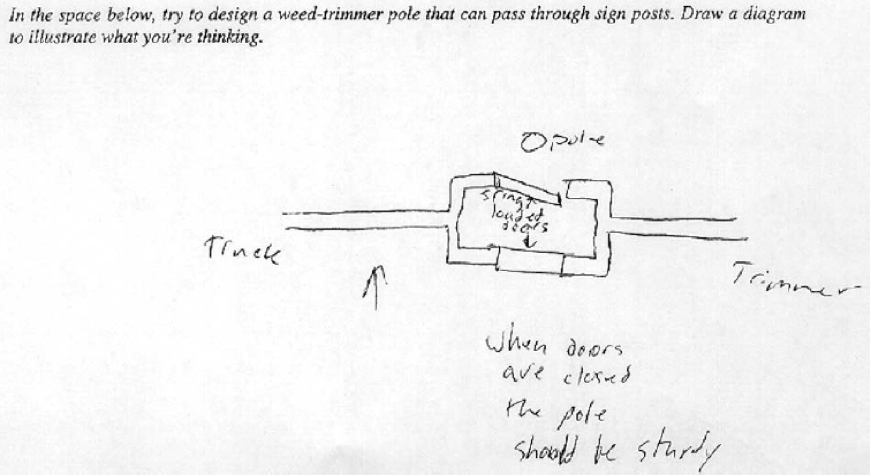 In the space below, try to design a weed-trimmer pole that can pass through sign posts. Draw a diagram
to illustrate what you're thinking.
pole
spring
loaded
doors
Truck
Trimmer
When doors
are closed
the pole
should be sturdy